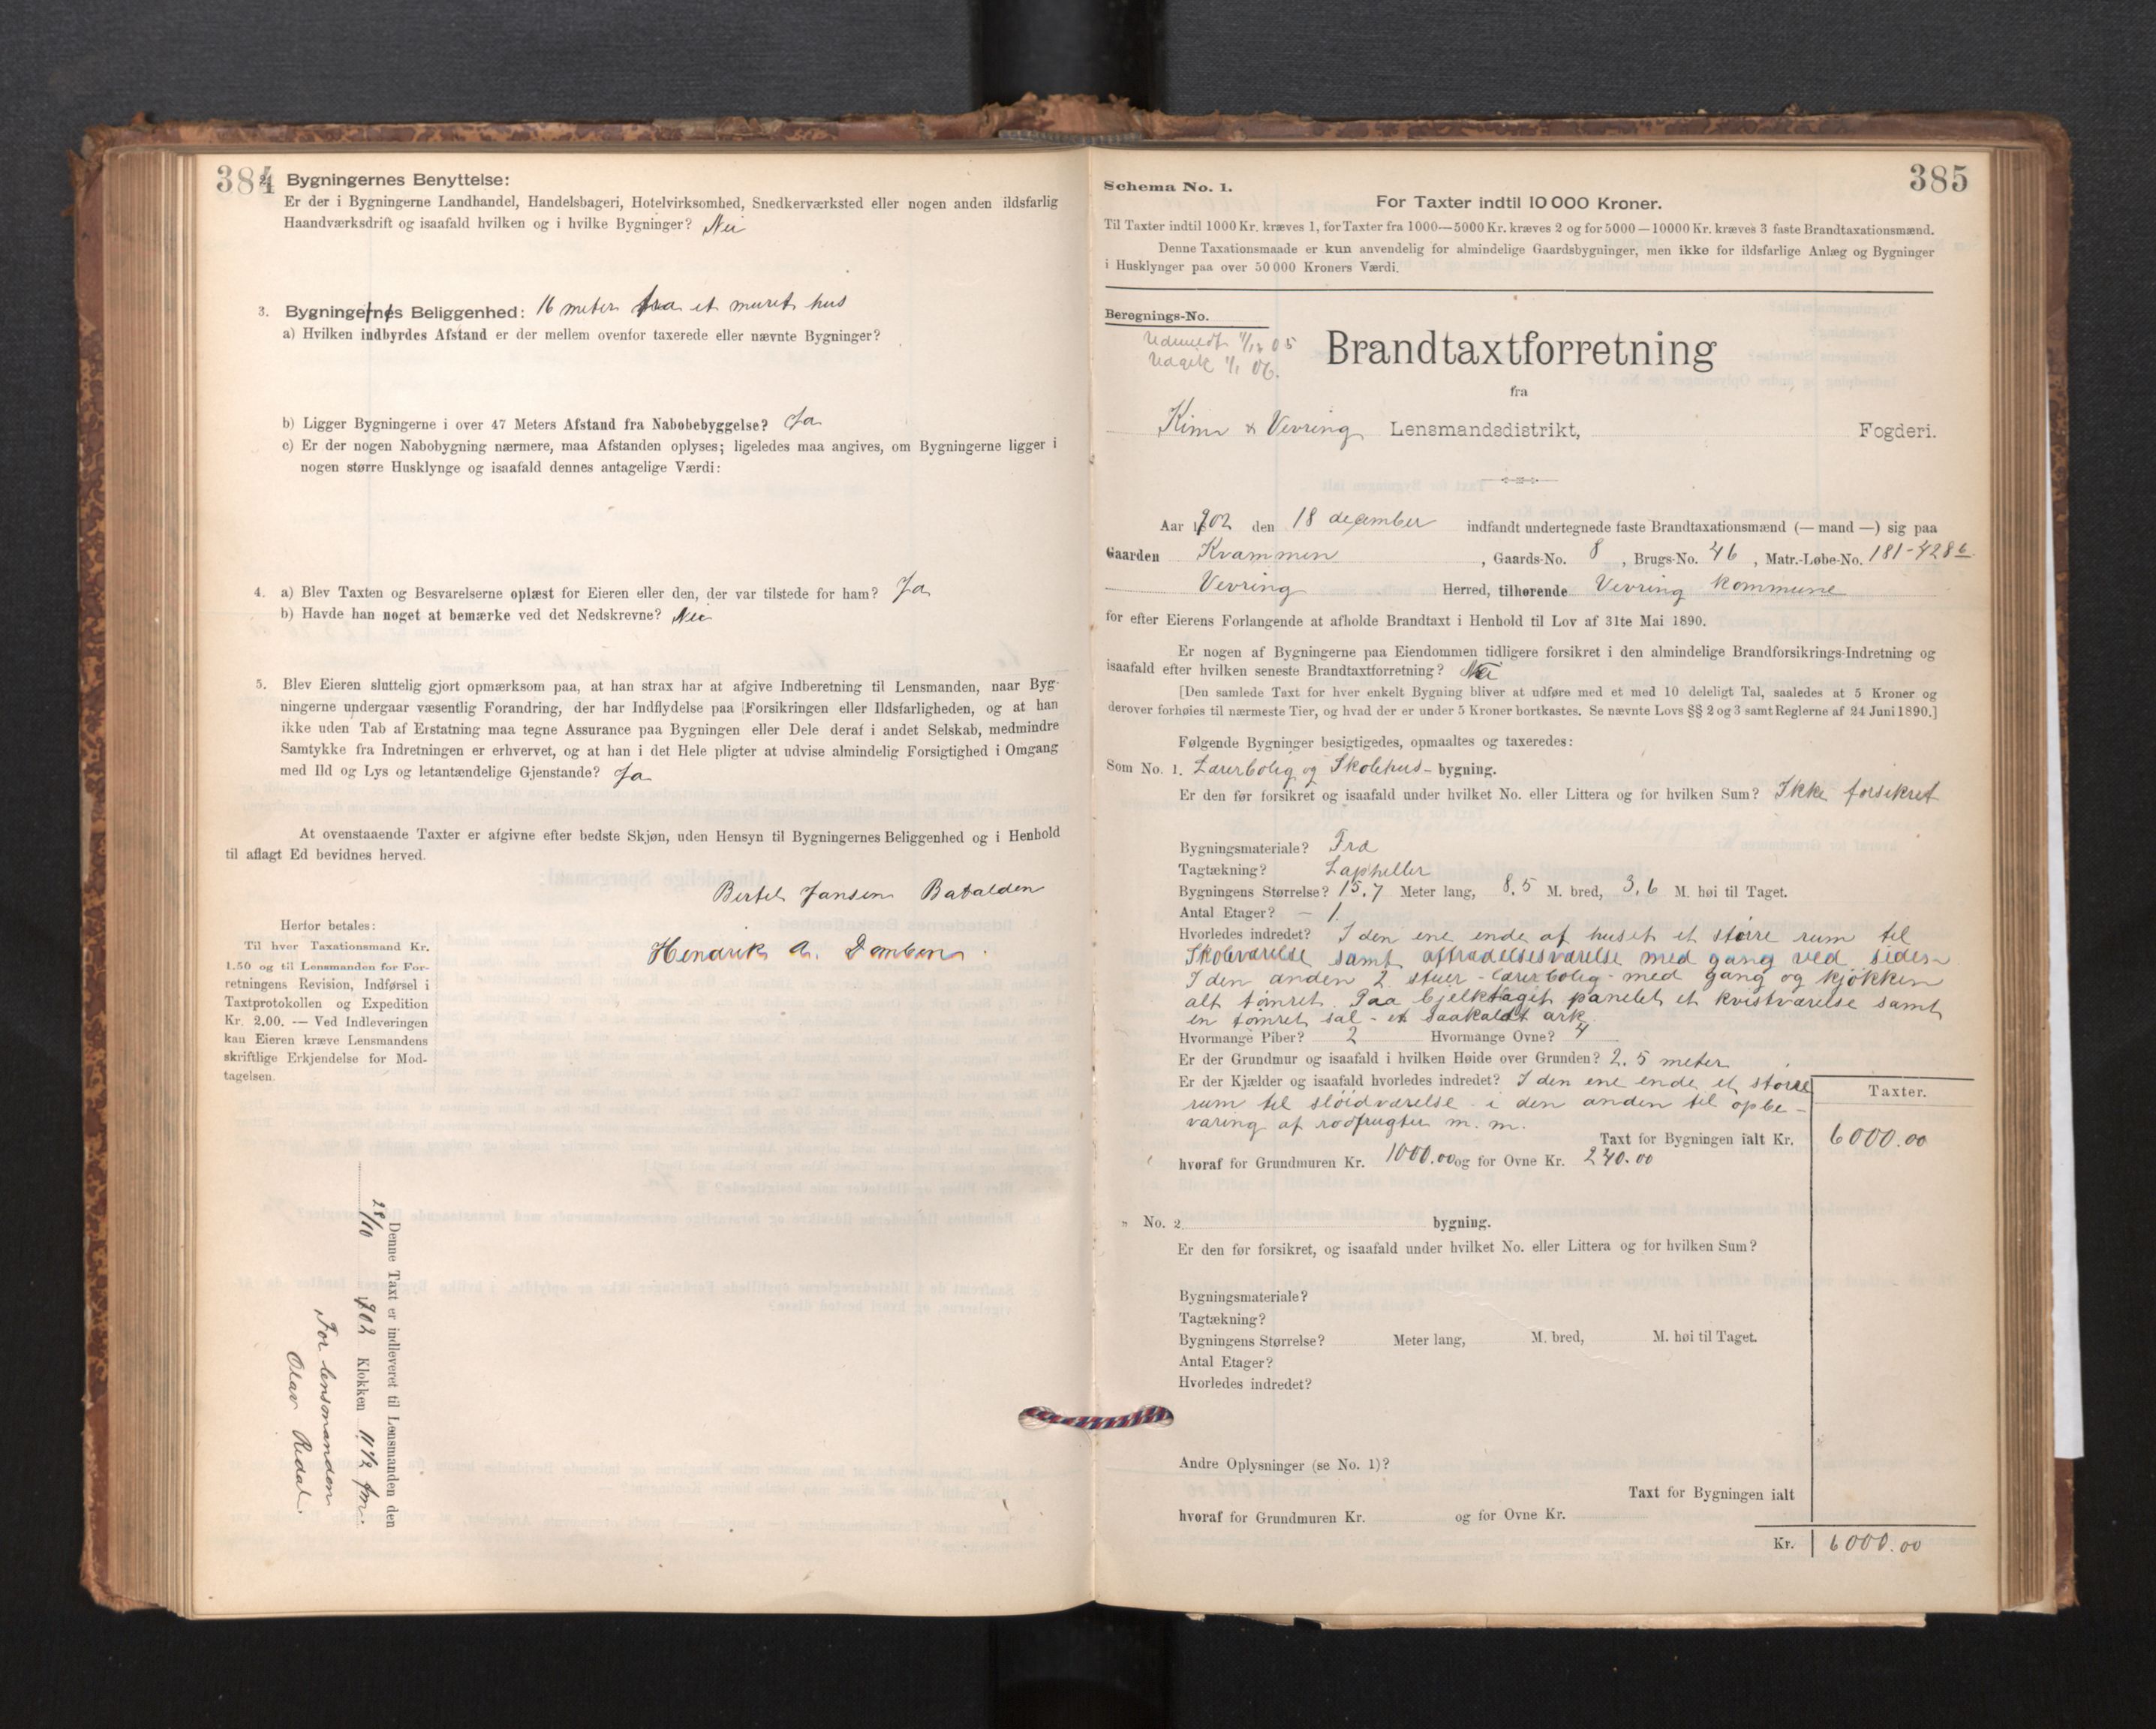 384
2. Bygningernes Benyttelse:
Er der i Bygningerne Landhandel, Handelsbageri, Hotelvirksomhed, Snedkerværksted eller nogen anden ildsfarlig
Haandværksdrift og isaafald hvilken og i hvilke Bygninger? Nei
3. Bygningernes Beliggenhed: 16 meter fra et muret hus
a) Hvilken indbyrdes Afstand er der mellem ovenfor taxerede eller nævnte Bygninger?
b) Ligger Bygningerne i over 47 Meters Afstand fra Nabobebyggelse? Ja
c) Er der nogen Nabobygning nærmere, maa Afstanden oplyses; ligeledes maa angives, om Bygningerne ligger i
nogen større Husklynge og isaafald dennes antagelige Værdi:
4. a) Blev Taxten og Besvarelserne oplæst for Eieren eller den, der var tilstede for ham? Ja
b) Havde han noget at bemærke ved det Nedskrevne? Nei
5. Blev Eieren sluttelig gjort opmærksom paa, at han strax har at afgive Indberetning til Lensmanden, naar Byg-
ningerne undergaar væsentlig Forandring, der har Indflydelse paa Forsikringen eller Ildsfarligheden, og at han
ikke uden Tab af Erstatning maa tegne Assurance paa Bygningen eller Dele deraf i andet Selskab, medmindre
Samtykke fra Indretningen er erhvervet, og at han i det Hele pligter at udvise almindelig Forsigtighed i Omgang
med Ild og Lys og letantændelige Gjenstande? Ja
At ovenstaaende Taxter er afgivne efter bedste Skjøn, uden Hensyn til Bygningernes Beliggenhed og i Henhold
til aflagt Ed bevidnes herved.
Bertel Jansen Batalden
Hendrik A.
Herfor betales:
Til hver Taxationsmand Kr.
1.50 og til Lensmanden for For-
retningens Revision, Indførsel i
Taxtprotokollen og Expedition
Kr. 2.00. — Ved Indleveringen
kan Eieren kræve Lensmandens
skriftlige Erkjendelse for Mod-
tagelsen.
Denne Taxt er indleveret til Lensmanden den
1902 Klokken 11 1/2 fm.
For lensmanden
Olav Redal
385
Schema No. 1.
For Taxter indtil 10 000 Kroner.
Til Taxter indtil 1000 Kr. kræves 1, for Taxter fra 1000—5000 Kr. kræves 2 og for 5000—10000 Kr. kræves 3 faste Brandtaxationsmænd.
Denne Taxationsmaade er kun anvendelig for almindelige Gaardsbygninger, men ikke for ildsfarlige Anlæg og Bygninger
i Husklynger paa over 50 000 Kroners Værdi.
Beregnings-No.
Udmeldt 1/12 05
Udgik 1/1 06.
Brandtaxtforretning
fra
Kinn & Vevring Lensmandsdistrikt, Fogderi.
Aar 1902 den 18 december indfandt undertegnede faste Brandtaxationsmænd (— mand —) sig paa
Gaarden Kvammen, Gaards-No. 8, Brugs-No. 46, Matr.-Løbe-No. 181-428 b
Vevring Herred, tilhørende Vevring kommune
for efter Eierens Forlangende at afholde Brandtaxt i Henhold til Lov af 31te Mai 1890.
Er nogen af Bygningerne paa Eiendommen tidligere forsikret i den almindelige Brandforsikrings-Indretning og
isaafald efter hvilken seneste Brandtaxtforretning? Nei
[Den samlede Taxt for hver enkelt Bygning bliver at udføre med et med 10 deleligt Tal, saaledes at 5 Kroner og
derover forhøies til nærmeste Tier, og hvad der er under 5 Kroner bortkastes. Se nævnte Lovs §§ 2 og 3 samt Reglerne af 24 Juni 1890.]
Følgende Bygninger besigtigedes, opmaaltes og taxeredes:
Som No. 1. Lærerbolig og Skolehus-bygning.
Er den før forsikret og isaafald under hvilket No. eller Littera og for hvilken Sum? Ikke forsikret
Bygningsmateriale? Træ
Tagtækning? Lapheller
Bygningens Størrelse? 15.7 Meter lang, 8.5 M. bred, 3.6 M. høi til Taget.
Antal Etager? - 1.
Hvorledes indredet? I den ene ende af huset et større rum til
Skoleværelse samt aftrædelsesværelse med gang ved siden
I den anden 2 stuer - lærerbolig - med gang og kjøkken
alt tømret. Paa bjelktaget panelet et kvistværelse samt
en tømret sal - et saakaldt ark.
Hvormange Piber? 2 Hvormange Ovne? 4
Er der Grundmur og isaafald i hvilken Høide over Grunden? 2.5 meter
Er der Kjælder og isaafald hvorledes indredet? I den ene ende et større
rum til sløidværelse - i den anden til opbe-
varing af rodfrugter m. m.
Taxter.
Taxt for Bygningen ialt Kr. 6000.00
hvoraf for Grundmuren Kr. 1000.00 og for Ovne Kr. 240.00
" No. 2 bygning.
Er den før forsikret, og isaafald under hvilket No. eller Littera og for hvilken Sum?
Bygningsmateriale?
Tagtækning?
Bygningens Størrelse? Meter lang, M. bred, M. høi til Taget.
Antal Etager?
Hvorledes indredet?
Andre Oplysninger (se No. 1)?
Taxt for Bygningen ialt
hvoraf for Grundmuren Kr. og for Ovne Kr.
Kr. 6000.00